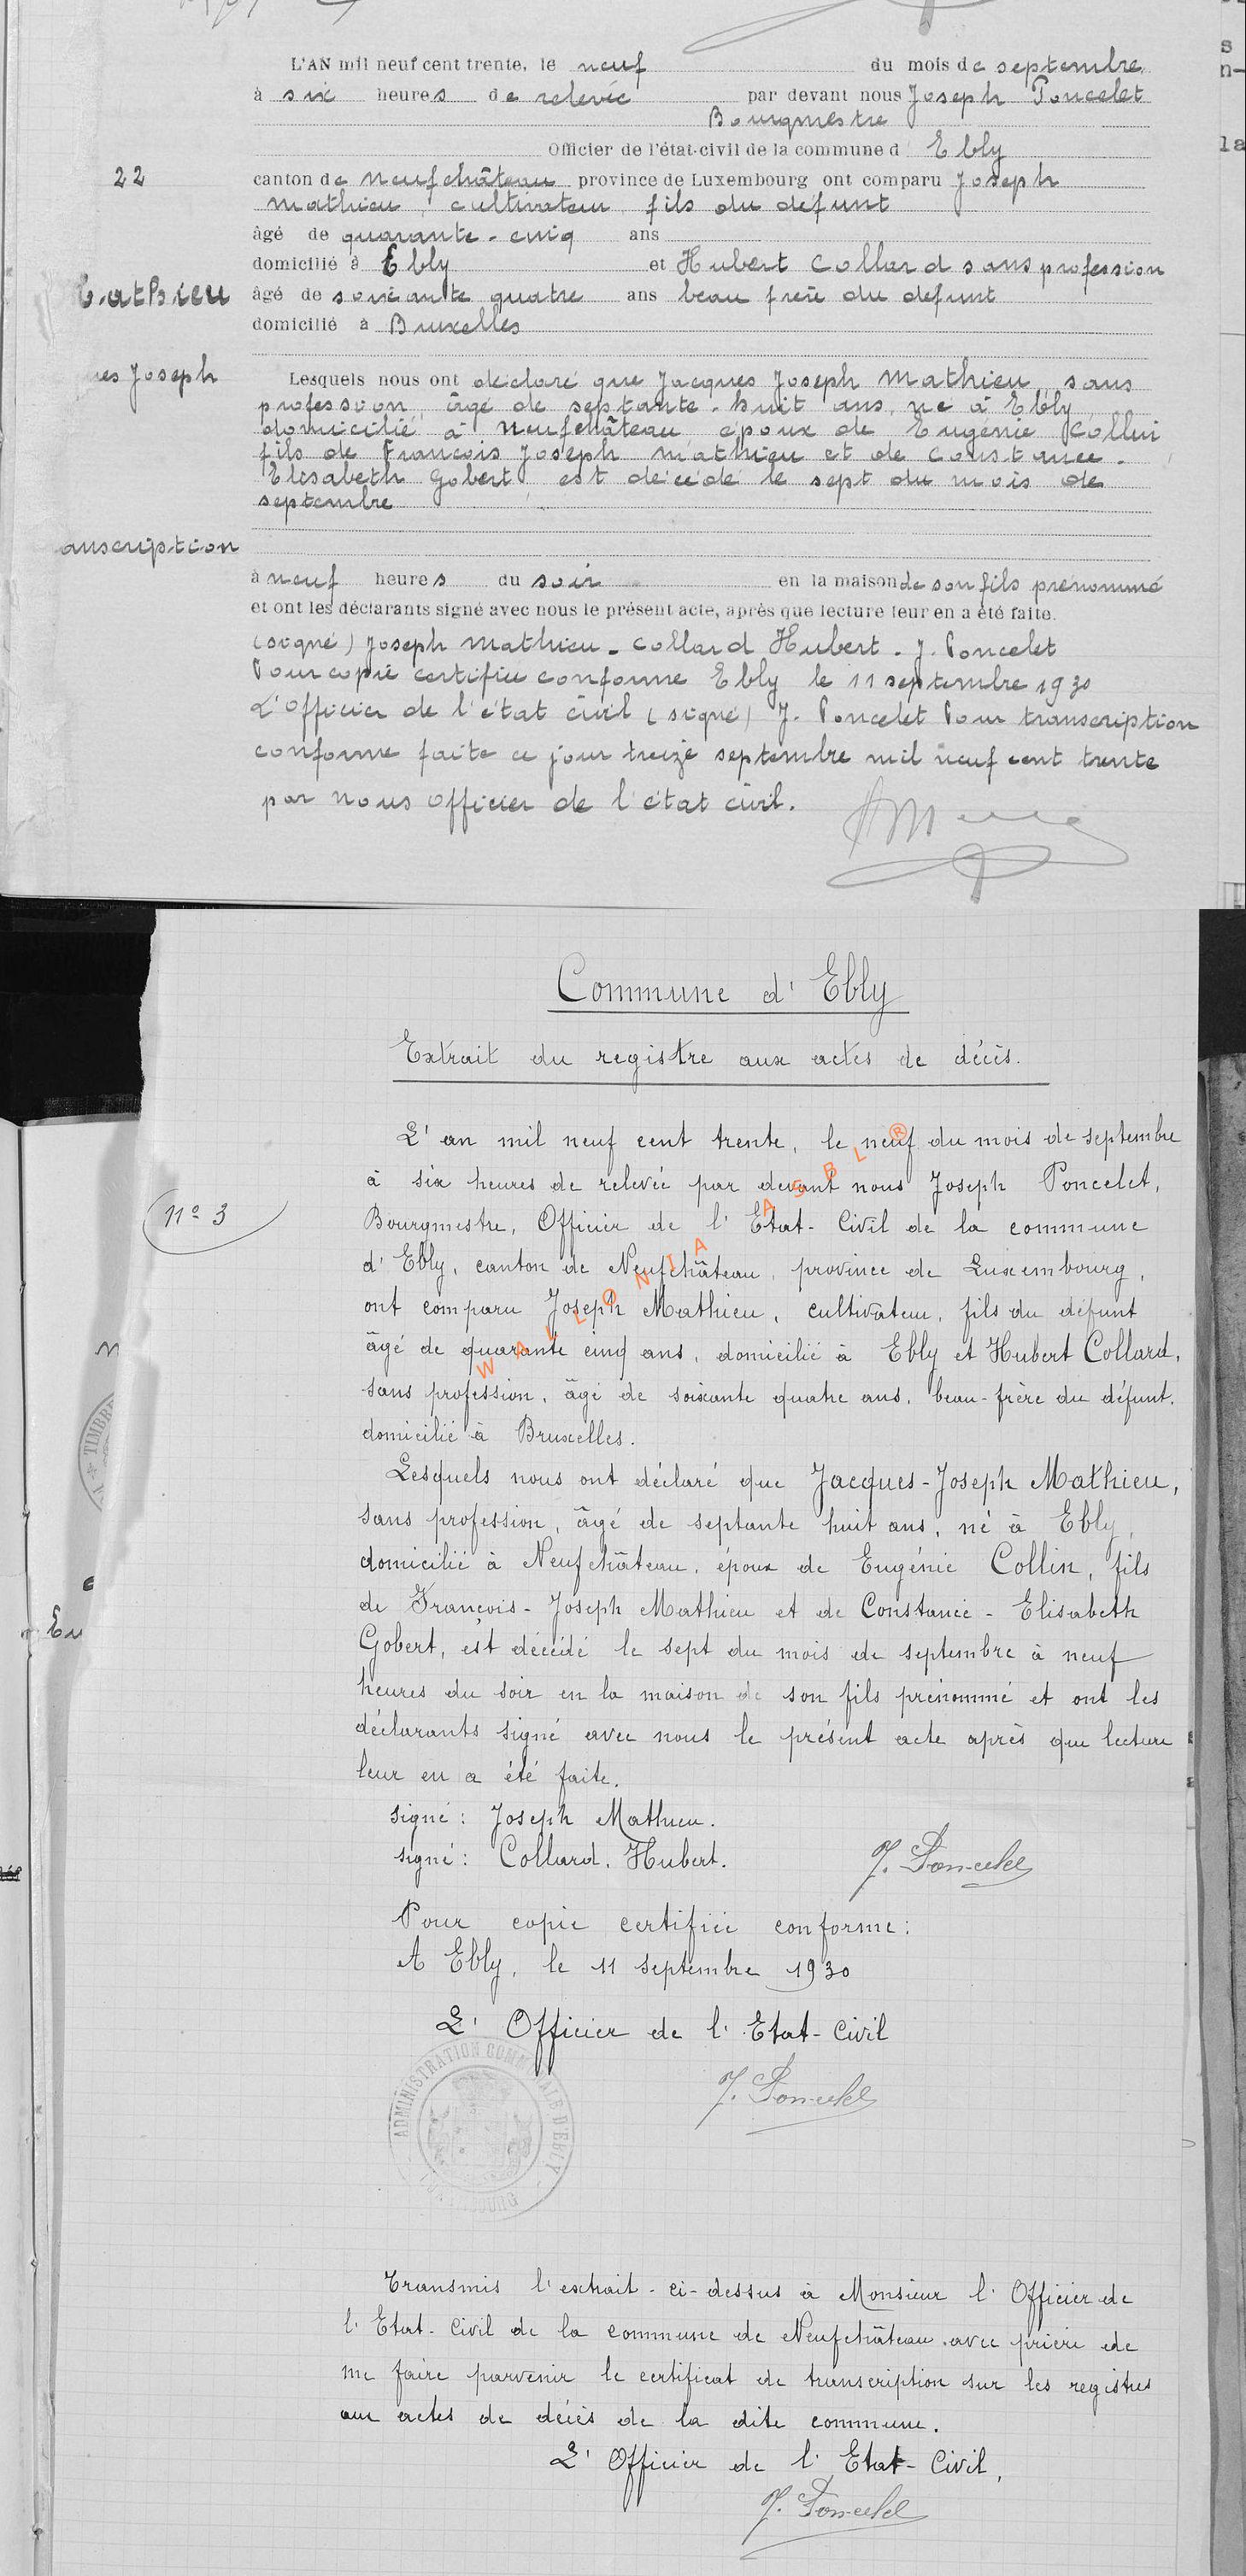 L'AN mil neuf cent trente, le neuf du mois de septembre
à six heures de relevée par devant nous Joseph Poncelet
Bourgmestre
Officier de l'état-civil de la commune d Ebly
22
canton de Neufchâteau province de Luxembourg ont comparu Joseph
Mathieu, cultivateur, fils du défunt
âgé de quarante-cinq ans
domicilié à Ebly et Hubert Collard sans profession
Mathieu
âgé de soixante quatre ans beau frère du défunt
domicilié à Bruxelles
ues Joseph
Lesquels nous ont déclaré que Jacques Joseph Mathieu, sans
profession, âgé de septante-huit ans, né à Ebly,
domicilié à Neufchâteau, époux de Eugénie Collin
fils de François Joseph Mathieu et de Constance-
Elisabeth Gobert, est décédé le sept du mois de
septembre
anscription
à neuf heures du soir en la maison de son fils prénommé
et ont les déclarants signé avec nous le présent acte, après que lecture leur en a été faite.
(signé) Joseph Mathieu - Collard Hubert. J. Poncelet
Pour copie certifiée conforme Ebly le 11 septembre 1930
L'Officier de l'état civil (signé) J. Poncelet Pour transcription
conforme faite ce jour treize septembre mil neuf cent trente
par nous officier de l'état civil.
Commune d'Ebly
Extrait du registre aux actes de décès.
L'an mil neuf cent trente, le neuf du mois de septembre
à six heures de relevée par devant nous Joseph Poncelet,
n° 3
Bourgmestre, Officier de l'Etat-Civil de la commune
d'Ebly, canton de Neufchâteau, province de Luxembourg,
ont comparu Joseph Mathieu, cultivateur, fils du défunt
âgé de quarante cinq ans, domicilié à Ebly et Hubert Collard,
sans profession, âgé de soixante quatre ans, beau-frère du défunt.
domicilié à Bruxelles.
WALLONIA ASBL ®
Lesquels nous ont déclaré que Jacques-Joseph Mathieu,
sans profession, âgé de septante huit ans, né à Ebly,
domicilié à Neufchâteau, époux de Eugénie Collin, fils
de François-Joseph Mathieu et de Constance-Elisabeth
Gobert, est décédé le sept du mois de septembre à neuf
heures du soir en la maison de son fils prénommé et ont les
déclarants signé avec nous le présent acte après que lecture
leur en a été faite.
signé: Joseph Mathieu.
signé: Collard. Hubert.
J. Poncelet
Pour copie certifiée conforme:
A Ebly, le 11 septembre 1930
L'Officier de l'Etat-Civil
J. Poncelet
ADMINISTRATION COMMUNALE D'EBLY
LUXEMBOURG
TIMBRE
Transmis l'extrait-ci-dessus à Monsieur l'Officier de
l'Etat-Civil de la commune de Neufchâteau avec prière de
me faire parvenir le certificat de transcription sur les registres
aux actes de décès de la dite commune.
L'Officier de l'Etat-Civil,
J. Poncelet